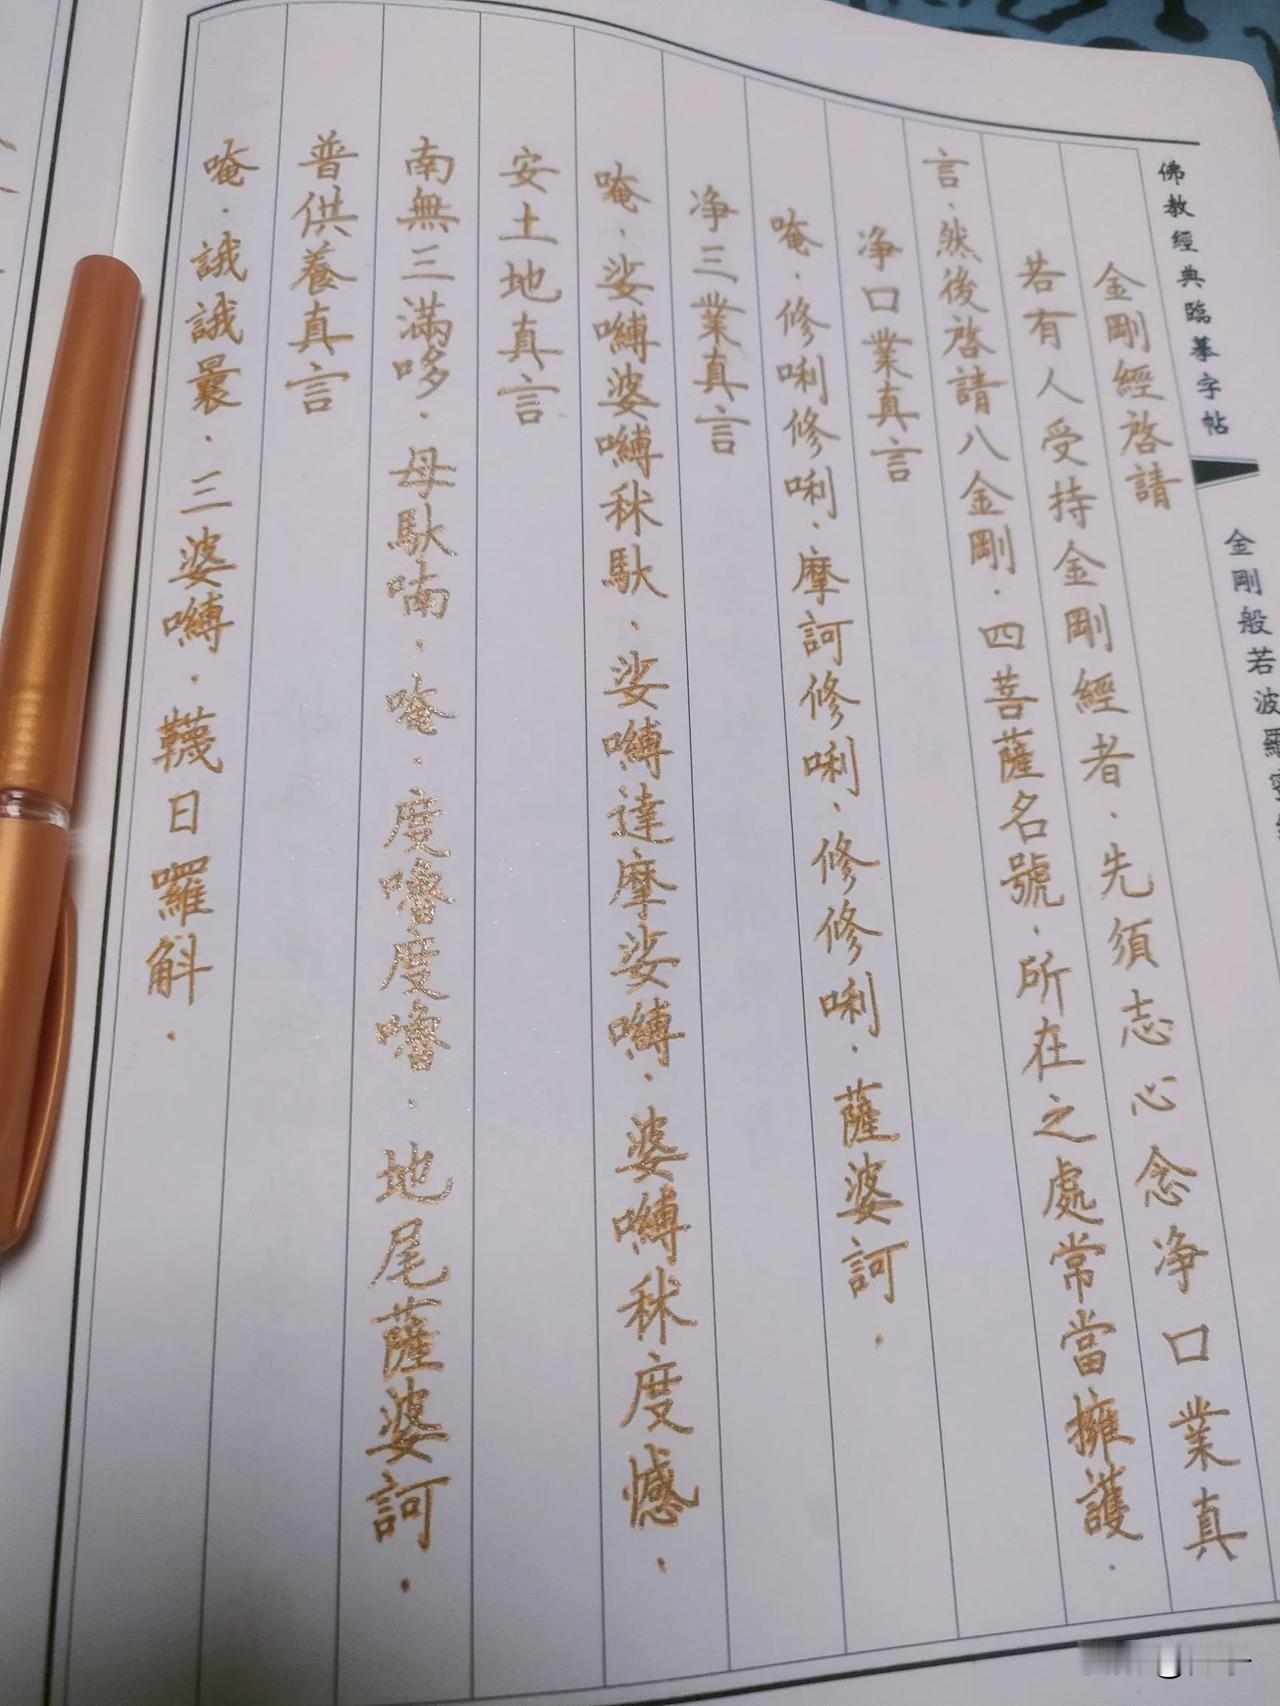 佛教經典臨摹字帖
金剛般若波羅
金剛經啓請
若有人受持金剛經者.先須志心念净口業真
言.然後啓請八金剛.四菩薩名號.所在之處常當擁護.
净口業真言
唵.修唎修唎.摩訶修唎.修修唎.薩婆訶.
净三業真言
唵.娑嚩婆嚩秫馱.娑嚩達摩娑嚩.婆嚩秫度憾.
安土地真言
南無三滿哆.母馱喃.唵.度嚕度嚕.地尾薩婆訶.
普供養真言
唵.誐誐曩.三婆嚩.韈日囉斛.